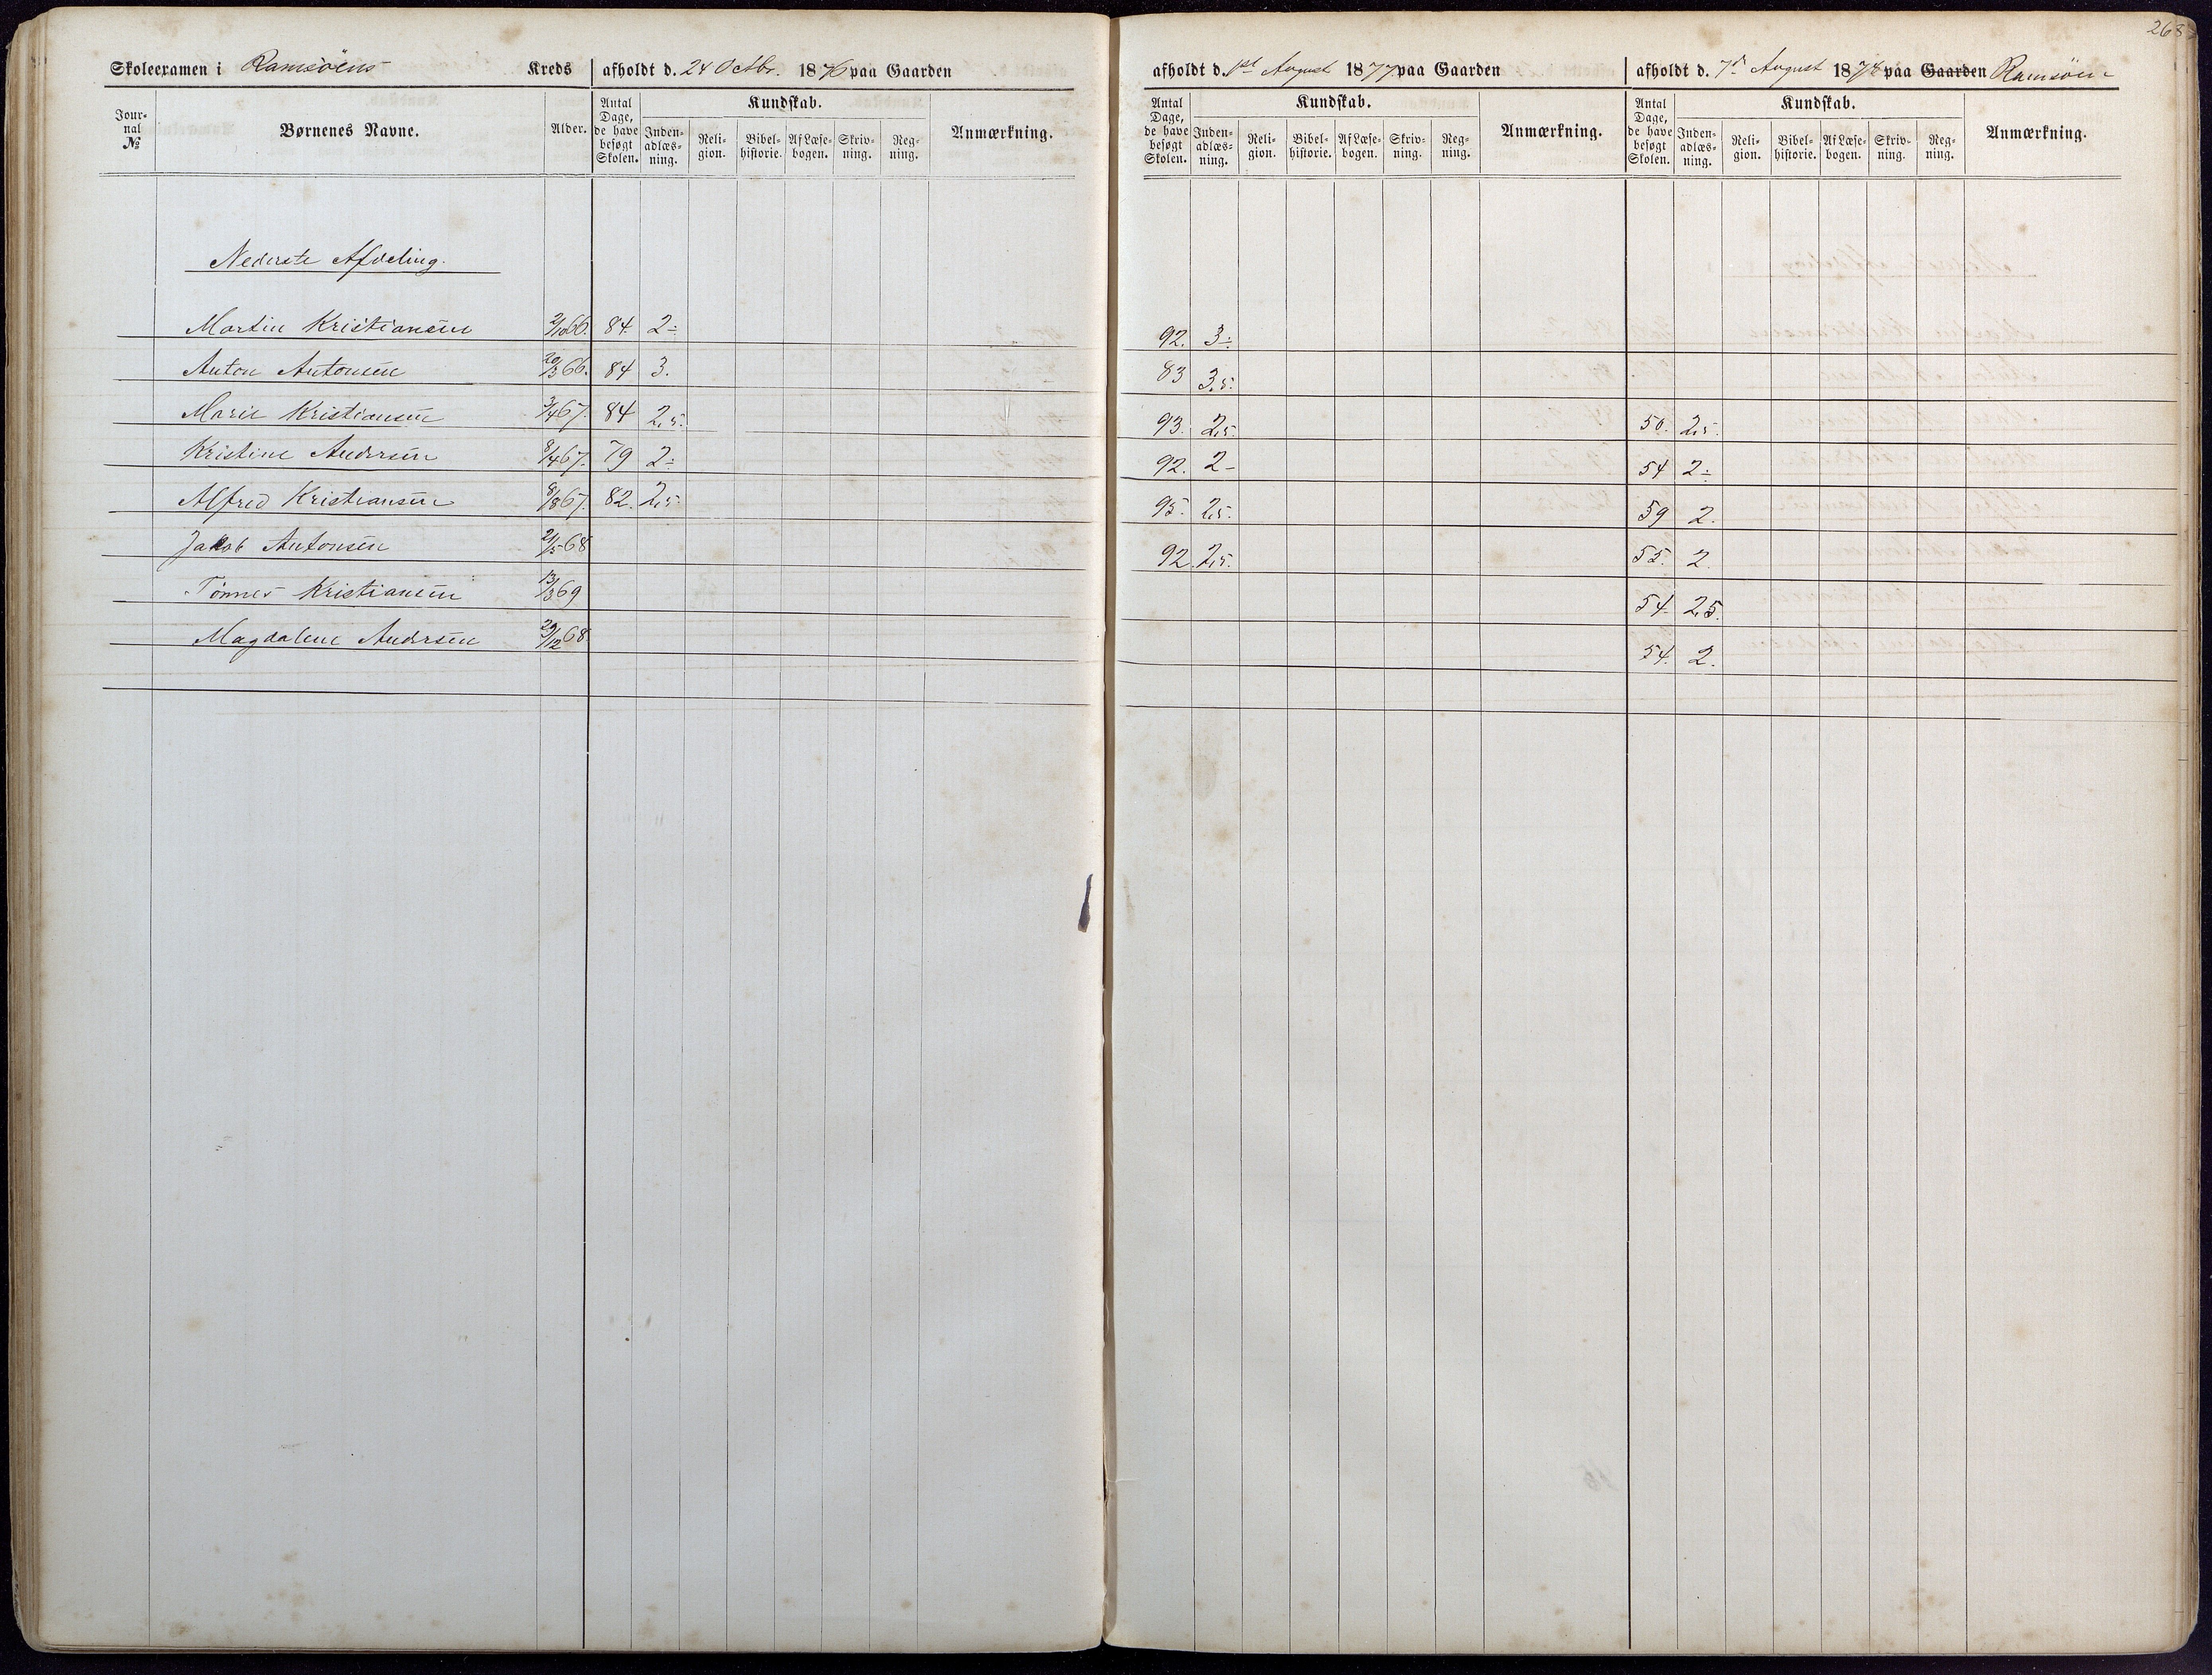 268
Skoleexamen i Ramsöens Kreds afholdt d. 24 Octbr. 1876 paa Gaarden
afholdt d. 1st August 1877 paa Gaarden
afholdt d. 7d August 1878 paa Gaarden Ramsöen
Jour-nal № Børnenes Navne. Alder. Antal Dage, de have besøgt Skolen. Kundskab. Inden-adlæs-ning. Reli-gion. Bibel-historie. Af Læse-bogen. Skriv-ning. Reg-ning. Anmærkning.
Antal Dage, de have besøgt Skolen. Kundskab. Inden-adlæs-ning. Reli-gion. Bibel-historie. Af Læse-bogen. Skriv-ning. Reg-ning. Anmærkning.
Antal Dage, de have besøgt Skolen. Kundskab. Inden-adlæs-ning. Reli-gion. Bibel-historie. Af Læse-bogen. Skriv-ning. Reg-ning. Anmærkning.
Nederste Afdeling.
Martin Kristiansen 2/10 66. 84. 2- 92. 3-
Anton Antonsen 20/3 66. 84 3. 83 3,5.
Marie Kristiansen 3/4 67. 84 2,5. 93. 2,5. 50. 2,5.
Kristine Andersen 8/4 67. 79 2- 92. 2- 54 2-
Alfred Kristiansen 8/8 67. 82. 2,5 95. 2,5. 59 2.
Jakob Antonsen 21/5 68 92. 2,5. 55. 2.
Tönnes Kristiansen 13/3 69 54. 2,5.
Magdalene Andersen 29/12 68. 54. 2.